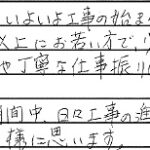 いよいよ工事の始ま
以上にお若い方で、
や丁寧な仕事振り
期間中、日々工事の進
様に思います。